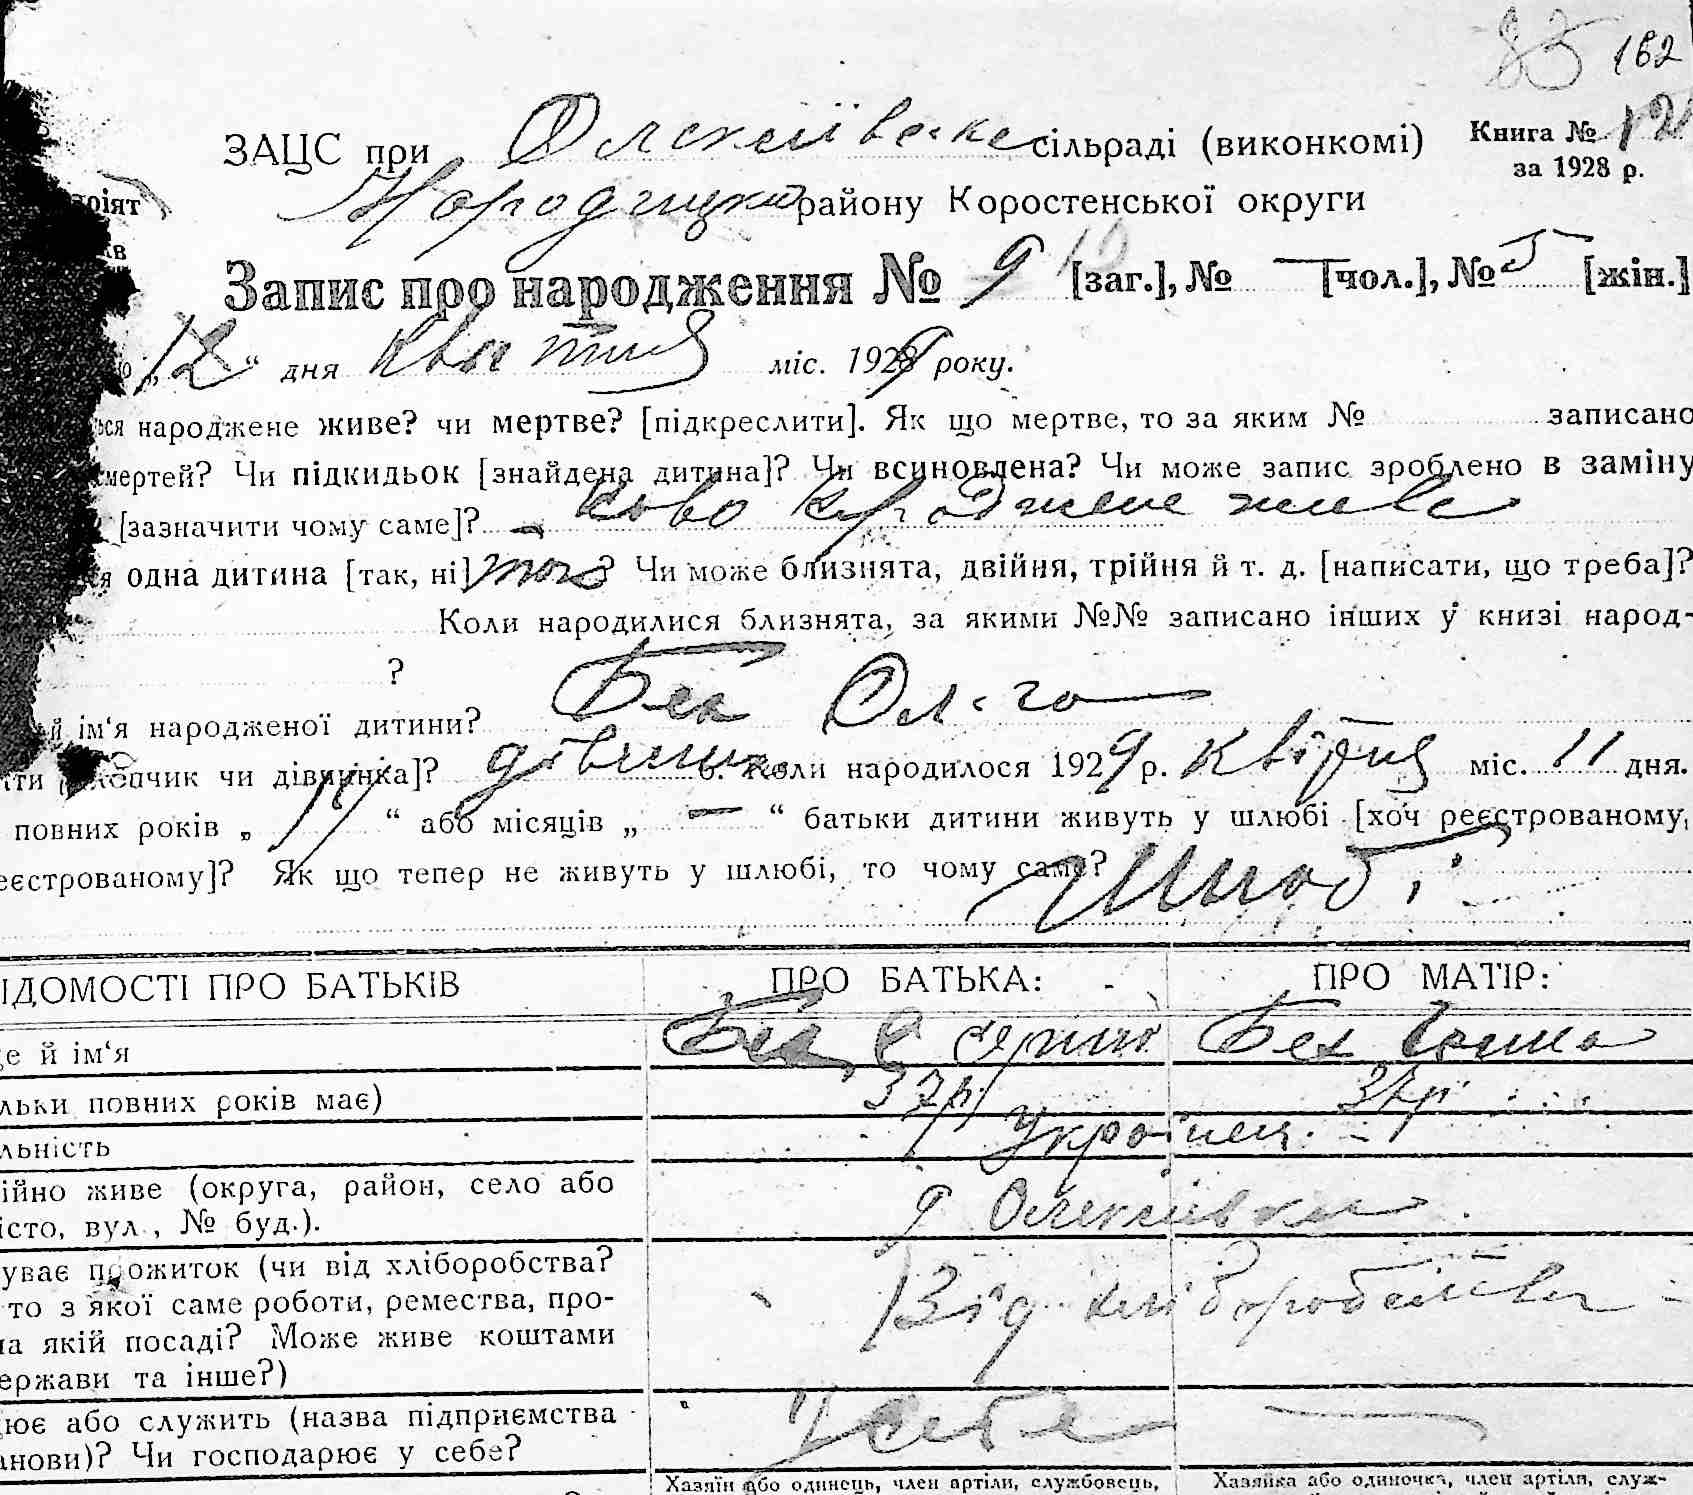 85 182
ЗАЦС при Олексіївське сільраді (виконкомі) Книга № 12
за 1928 р.
Народицько району Коростенської округи
Запис про народження № 9 [заг.], № — [чол.], № 5 [жін.]
12 “ дня квітня міс. 1929 року.
ься народжене живе? чи мертве? [підкреслити]. Як що мертве, то за яким № записано
смертей? Чи підкидьок [знайдена дитина]? Чи всиновлена? Чи може запис зроблено в заміну
[зазначити чому саме]? ново народжене живе
ся одна дитина [так, ні] Чи може близнята, двійня, трійня й т. д. [написати, що треба]?
Коли народилися близнята, за якими №№ записано інших у книзі народ-
?
й ім‘я народженої дитини? Бех Ольга
ити [хлопчик чи дівчинка]? дівчина 6. Коли народилося 1929 р. квітня міс. 11 дня.
повних років „ 14 “ або місяців „ — “ батьки дитини живуть у шлюбі [хоч реєстрованому,
еєстрованому]? Як що тепер не живуть у шлюбі, то чому саме? Шлюбі
ІДОМОСТІ ПРО БАТЬКІВ ПРО БАТЬКА: ПРО МАТІР:
ще й ім‘я Бех Бех
льки повних років має) 37р 37р
льність Українец.
ійно живе (округа, район, село або
істо, вул., № буд.). Олексіівка
уває прожиток (чи від хліборобства?
то з якої саме роботи, ремества, про-
на якій посаді? Може живе коштами
ержави та інше?) Від хліборобства
цює або служить (назва підприємства
анови)? Чи господарює у себе? У себе —
Хазяїн або одинець, член артіли, службовець, Хазяйка або одиночка, член артіли, служ-